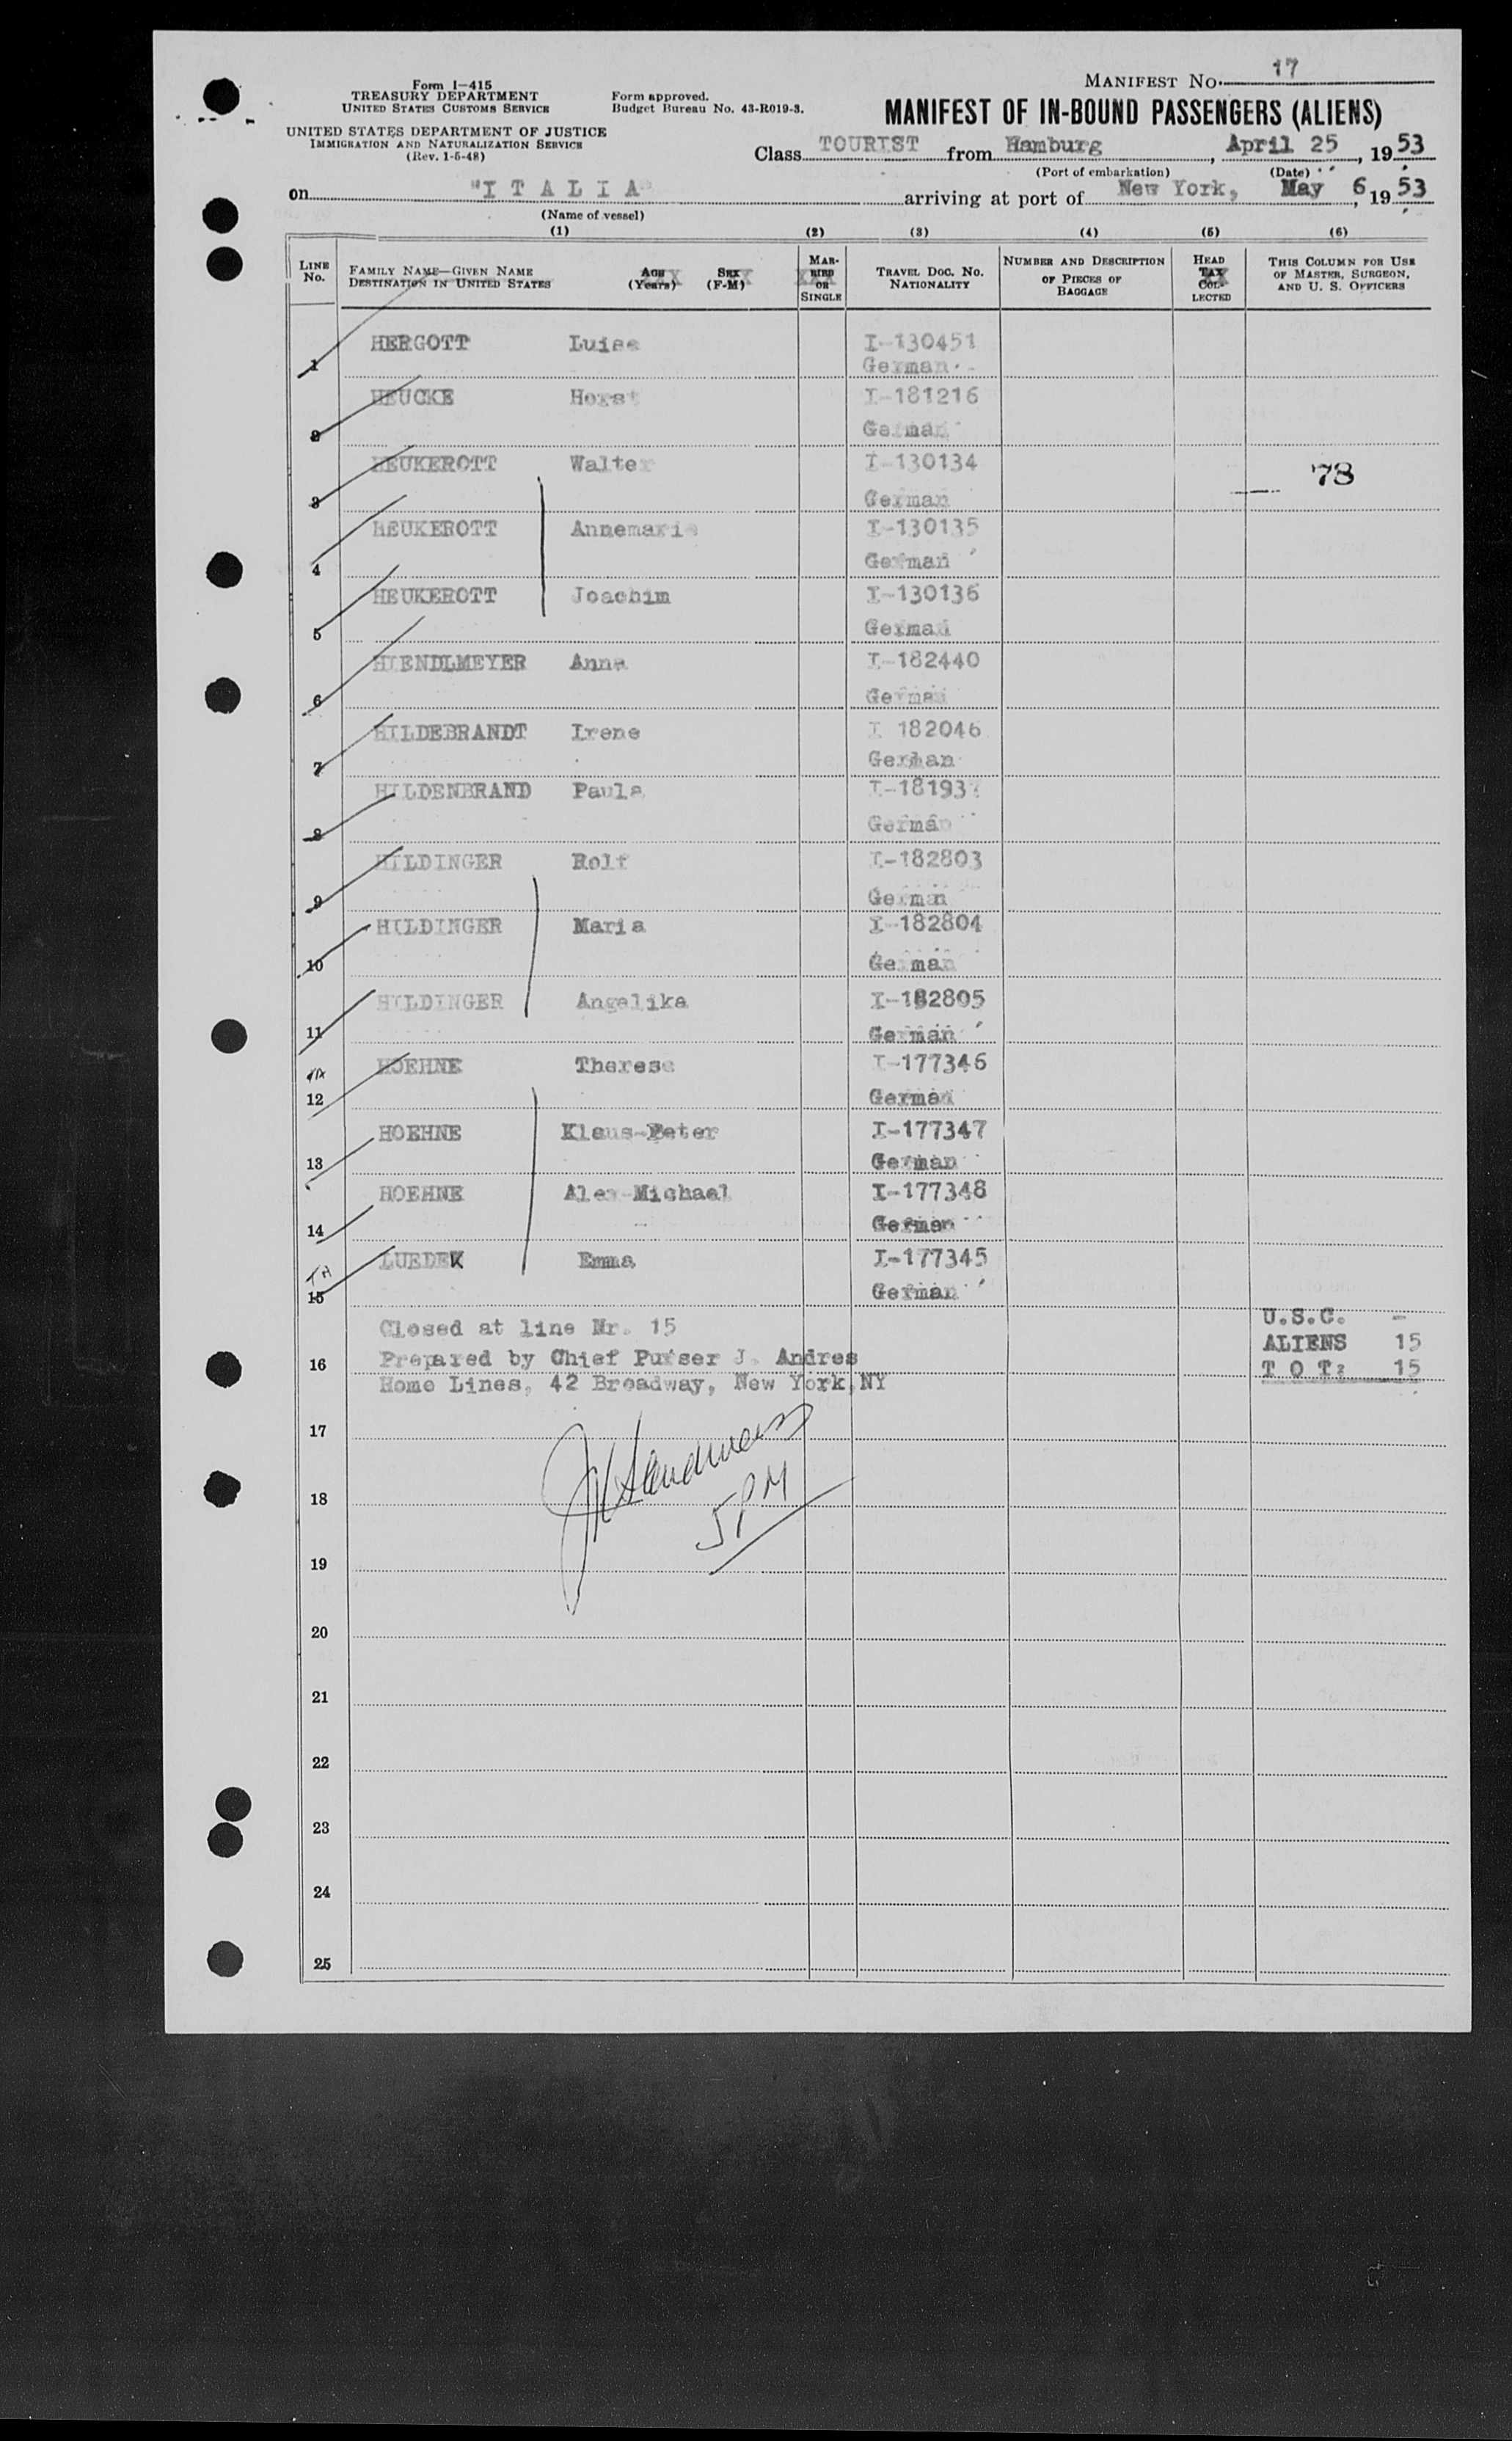 Manifest No. 17
Form I-415
TREASURY DEPARTMENT
UNITED STATES CUSTOMS SERVICE
Form approved.
Budget Bureau No. 43-R019-3.
MANIFEST OF IN-BOUND PASSENGERS (ALIENS)
UNITED STATES DEPARTMENT OF JUSTICE
IMMIGRATION AND NATURALIZATION SERVICE
(Rev. 1-5-48)
Class TOURIST from Hamburg, April 25, 1953
(Port of embarkation) (Date)
on "I T A L I A" arriving at port of New York, May 6, 1953
(Name of vessel)
(1) (2) (3) (4) (5) (6)
LINE No.
FAMILY NAME—GIVEN NAME
DESTINATION IN UNITED STATES
AGE (Years)
SEX (F-M)
MARRIED OR SINGLE
TRAVEL DOC. NO.
NATIONALITY
NUMBER AND DESCRIPTION OF PIECES OF BAGGAGE
HEAD TAX COLLECTED
THIS COLUMN FOR USE OF MASTER, SURGEON, AND U. S. OFFICERS
1 HERGOTT Luise I-130451
German
2 HEUCKE Horst I-181216
German
3 HEUKEROTT Walter I-130134 78
German
4 HEUKEROTT Annemarie I-130135
German
5 HEUKEROTT Joachim I-130136
German
6 HIENDLMEYER Anna I-182440
German
7 HILDEBRANDT Irene I 182046
German
8 HILDENBRAND Paula I-18193
German
9 HILDINGER Rolf I-182803
German
10 HILDINGER Maria I-182804
German
11 HILDINGER Angelika I-182805
German
12 HOEHNE Therese I-177346
German
13 HOEHNE Klaus-Peter I-177347
German
14 HOEHNE Alex-Michael I-177348
German
15 LUEDEK Emma I-177345
German
Closed at line Nr. 15
Prepared by Chief Purser J. Andres
Home Lines, 42 Broadway, New York,NY
U.S.C. -
ALIENS 15
T O T: 15
16
17
18
5 PM
19
20
21
22
23
24
25